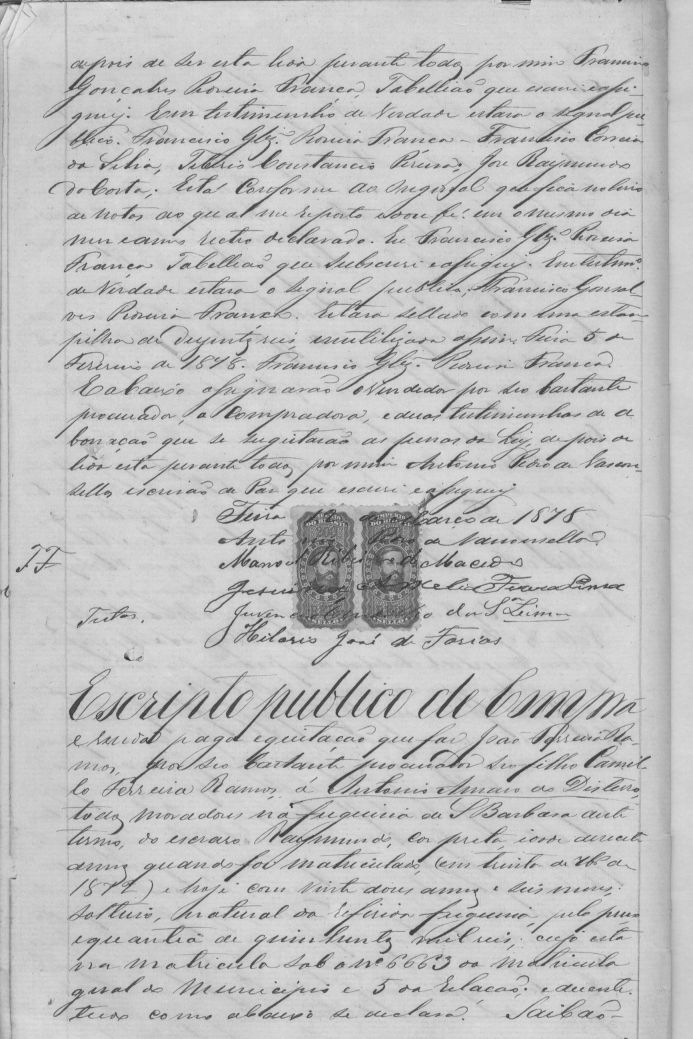 depois de ser esta lida perante todos por mim Francisco
Gonçalves Pereira França, Tabellião que escrevi e assi-
gney. Em testimunho de Verdade estava o signal pu-
blico. Francisco Glz. Pereira Franca - Francisco Correia
da Silva, Constancio Pereira, José Raymundo
da Costa; Está Conforme ao original que fica no livro
de notas ao que me reporto e dou fé: em o mesmo dia
mez e anno rectro declarado. Eu Francisco Glz. Pereira
Franca Tabellião que subscrevi e assigney. Em testmo.
de Verdade estava o signal publico, Francisco Gonsal-
ves Pereira Franca. Estava sellado com uma estam-
pilha de duzentos reis enutilizada assim, Feira 5 de
Fevereiro de 1878. Francisco Glz. Pereira Franca.
E abaixo assignarão o Vendedor por seo bastante
procurador, a Compradora, e duas testimunhas de a
bonação que se sugeitarão as penas da Ley, depois de
lida esta perante todos por mim Antonio Pedro de Vascon-
sellos escrivão de Paz que escrevi e assigney
Feira 12 de Março de 1878
Antonio Pedro de Vasconsellos
Manoel Ribeiro de Macedo
FF
Lima
Testas. Juvencio da S Lima
Hilario José de Farias
IMPERIO DO BRAZIL
SELLO
IMPERIO DO BRAZIL
SELLO
Escripto publico de Compra
e Venda paga e quitação que fáz João Ferreira Ra-
mos, por seo bastante procurador seo filho Camil-
lo Ferreira Ramos, á Antonio Amaro do Disterro,
todos moradores na freguesia de S Barbara deste
termo, do escravo Raymundo, cor preta, idade desecete
annos quando foi matriculado (em trinta de de
1872) e hoje com vinte dous annos e seis mezes;
solteiro, natural da referida freguesia, pelo preço
e quantia de quinhentos mil reis; cujo está
na matricula sob o nº 6663 da matricula
geral do Municipio e 5 da relação; e
como abaixo se declara. Saibão-